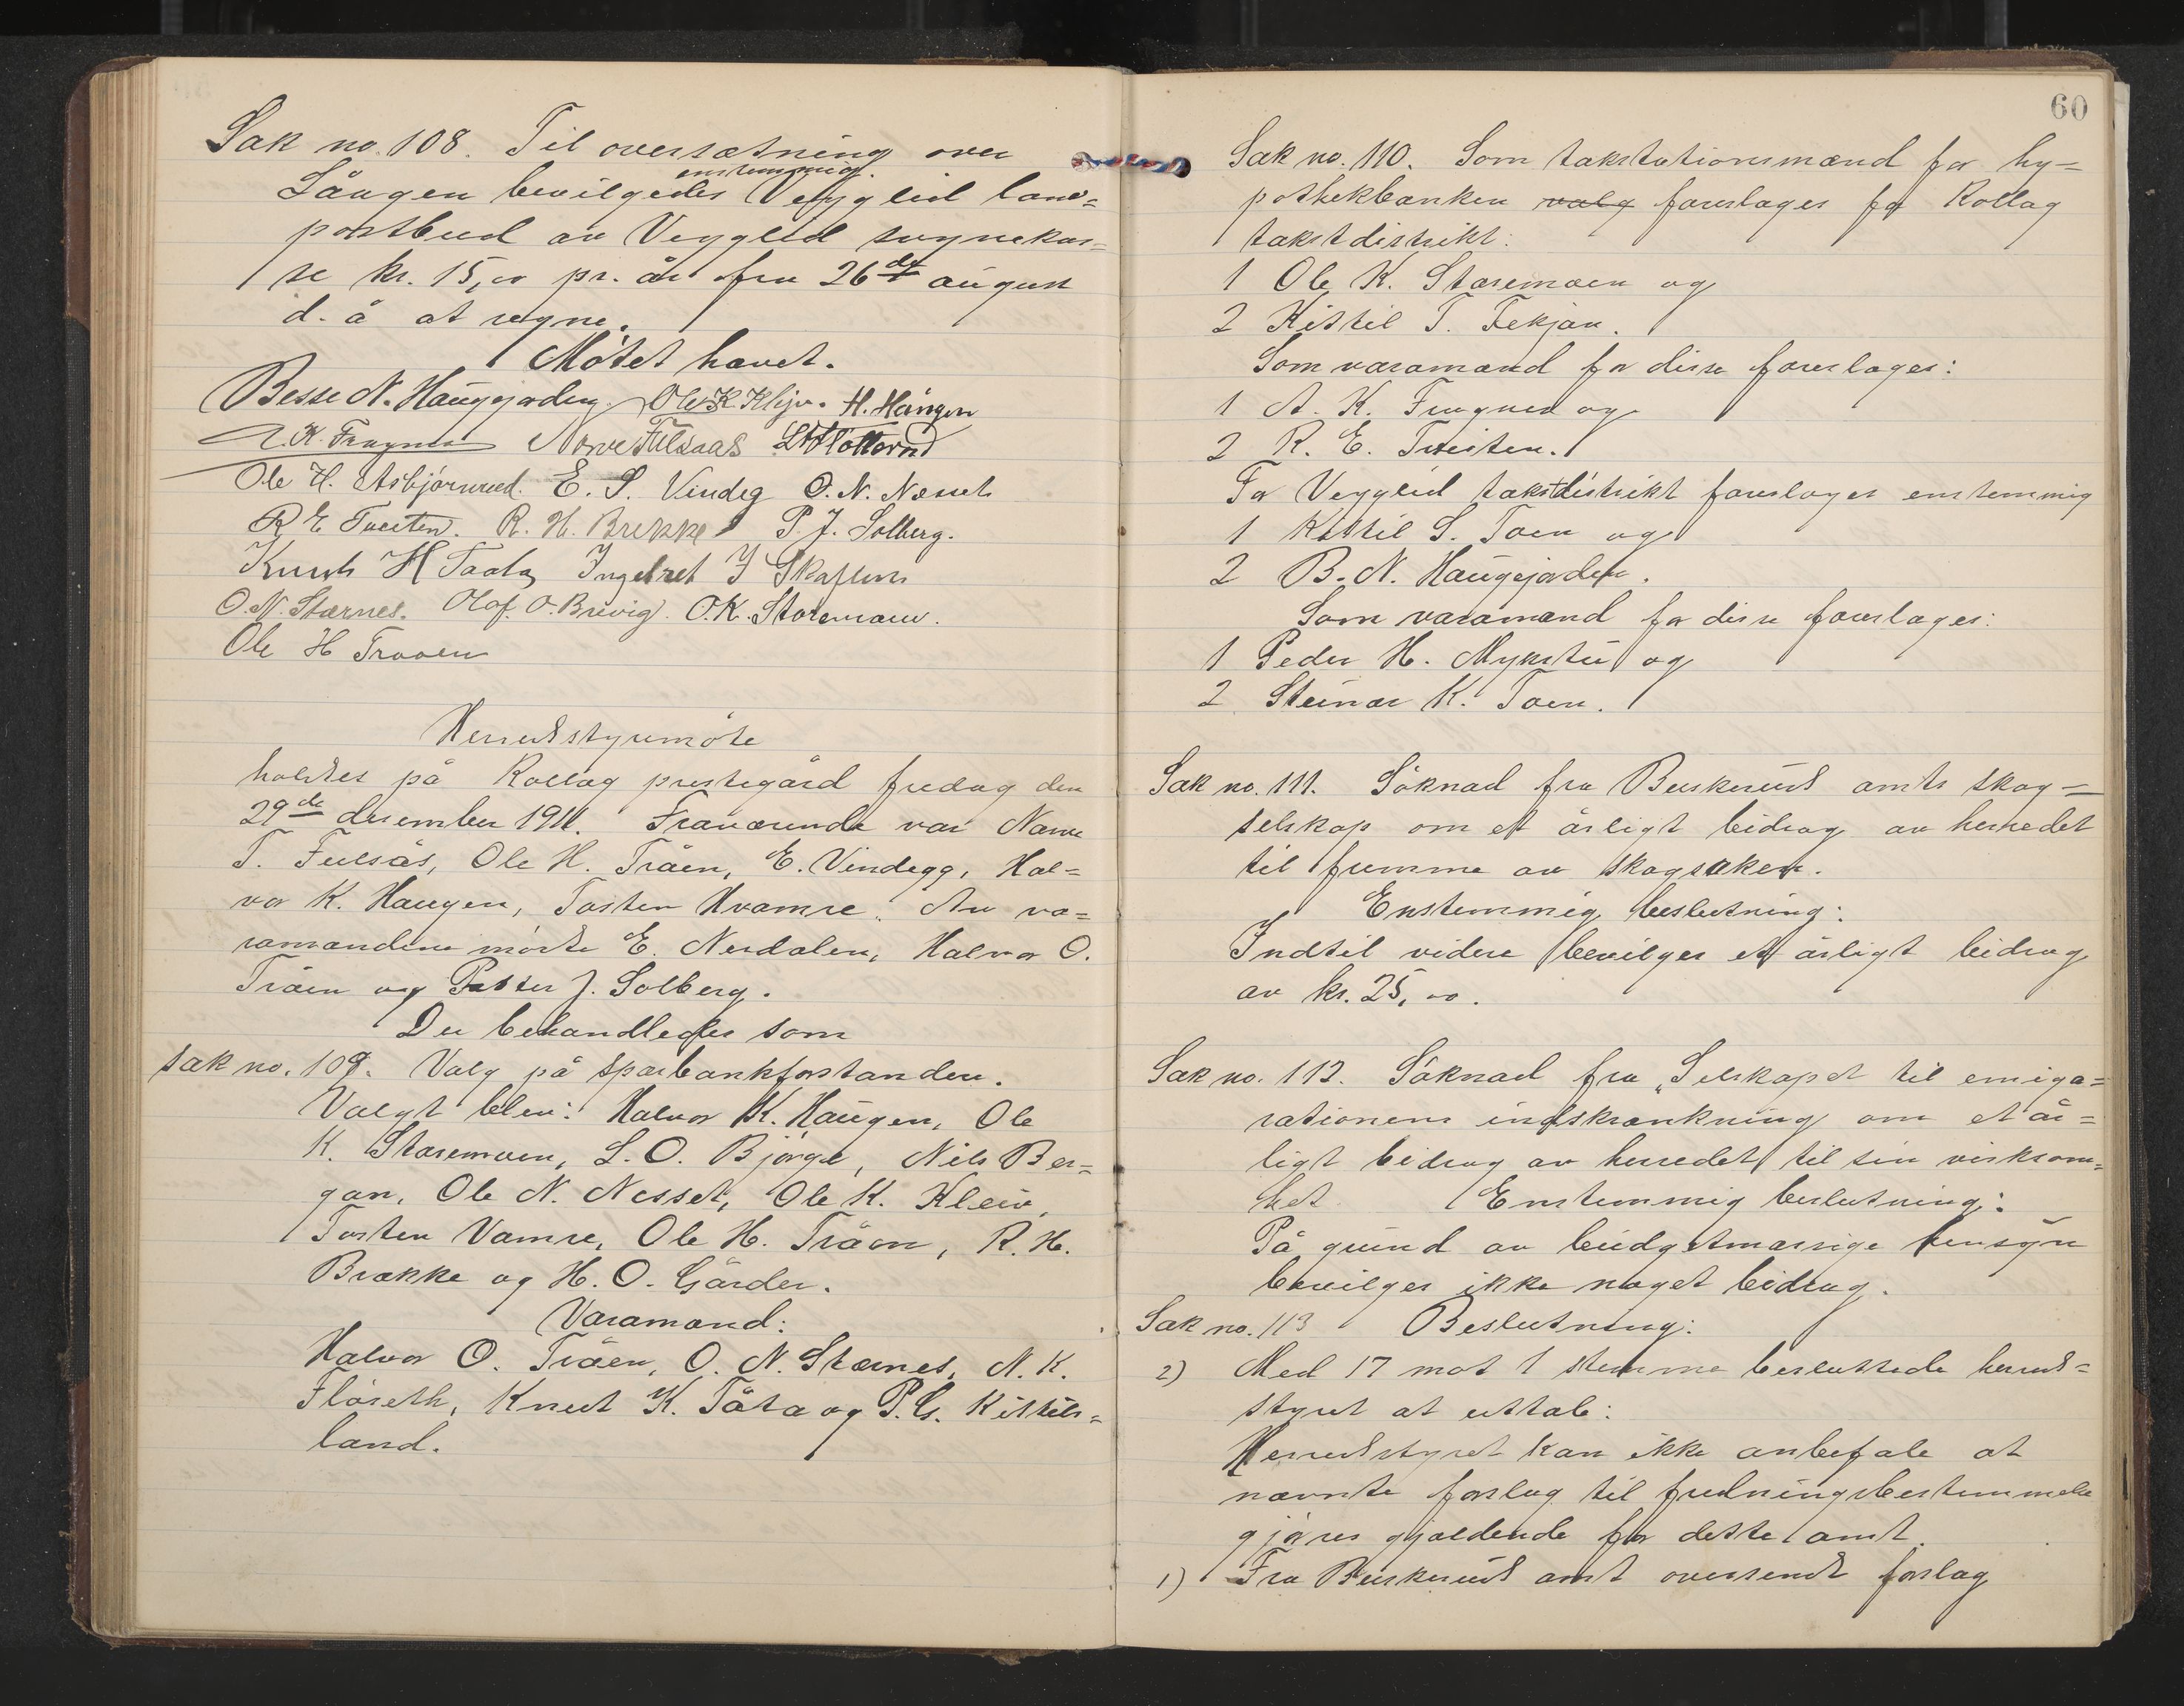 Sak no. 108. Til oversætning over
enstemmig
Lågen bevilgedes Vegglid land=
postbud av Vegglid sognekas=
se kr. 15,00 pr. år fra 26de august
d. å at regne.
Møtet hævet.
Besse N. Haugejorden. Ole K. Klejv. H. Haugen
A. K. Frygne Narve Fulsaas
Ole H. Asbjörnrud. E. S. Vindeg O. N. Næset
R E Tveiten. R. H. Brekke P. J. Solberg.
Knut H Taata Ingebret J Skaflem
O. N. Stærnes. Olaf. O. Brevig. O. K. Storemoen.
Ole H Traaen
Herredsstyremöte
holdtes på Rollag prestegård fredag den
29de desember 1911. Fraværende var Narve
T. Fulsås, Ole H. Tråen, E. Vindegg, Hal=
vor K. Haugen, Tosten Hvamre. Av va=
ramændene mötte E. Nerdalen, Halvor O.
Tråen og Petter J. Solberg.
Der behandledes som
sak no. 109. Valg på sparbankforstandere.
Valgt blev: Halvor K. Haugen, Ole
K. Staremoen, L. O. Björge, Nils Ber=
gan, Ole N. Nesset, Ole K. Kleiv,
Tosten Vamre, Ole H. Tråen, R. H.
Brække og H. O. Gårder.
Varamænd:
Halvor O. Tråen, O. N. Stærnes, N. K.
Flöseth, Knut K. Tåta og P. G. Kittils=
land.
60
Sak no. 110. Som takstationsmænd for hy=
pothekbanken valg foreslages for Rollag
takstdistrikt:
1 Ole K. Staremoen og
2 Kittil T. Fekjan.
Som varamænd for disse foreslages:
1 A. K. Frygne og
2 R. E. Tveiten.
For Vegglid takstdistrikt foreslages enstemmig
1 Kittil S. Toen og
2 B. N. Haugejorden.
Som varamænd for disse foreslages:
1 Peder H. Mykstu og
2 Steinar K. Toen.
Sak no. 111. Söknad fra Buskeruds amts skog=
selskap om et årligt bidrag av herredet
til fremme av skogsaken.
Enstemmig beslutning:
Indtil videre bevilges et årligt bidrag
av kr. 25,00.
Sak no. 112. Söknad fra "Selskapet til emiga=
rationens indskrænkning om et år=
ligt bidrag av herredet til sin virksom=
het. Enstemmig beslutning:
På grund av budgetmæssige hensyn
bevilges ikke noget bidrag.
Sak no. 113 Beslutning:
2) Med 17 mot 1 stemme besluttede herreds=
styret at uttale:
Herredsstyret kan ikke anbefale at
nævnte forslag til fredningsbestemmelse
gjöres gjældende for dette amt.
1) Fra Buskerud amt oversendt forslag